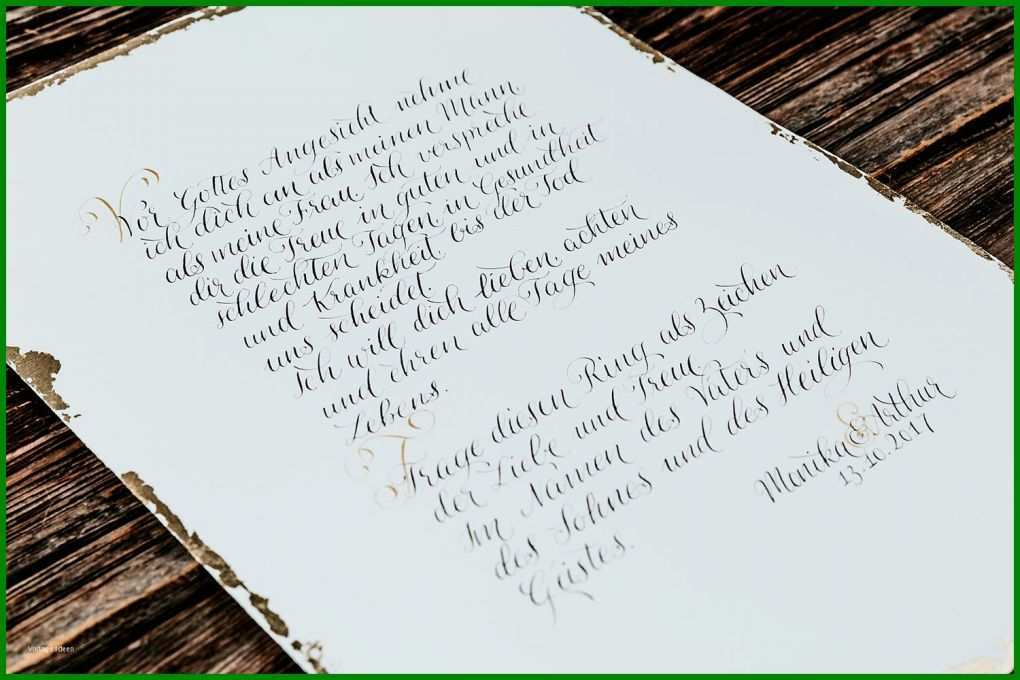 Vor Gottes Angesicht nehme
ich dich an als meinen Mann
als meine Frau Ich verspreche
dir die Treue in guten und in
schlechten Tagen in Gesundheit
und Krankheit, bis der Tod
uns scheidet.
Ich will dich lieben, achten
und ehren alle Tage meines
Lebens.
Trage diesen Ring als Zeichen
der Liebe und Treue
Im Namen des Vaters und
des Sohnes und des Heiligen
Geistes.
Monika & Arthur
13.10.2017